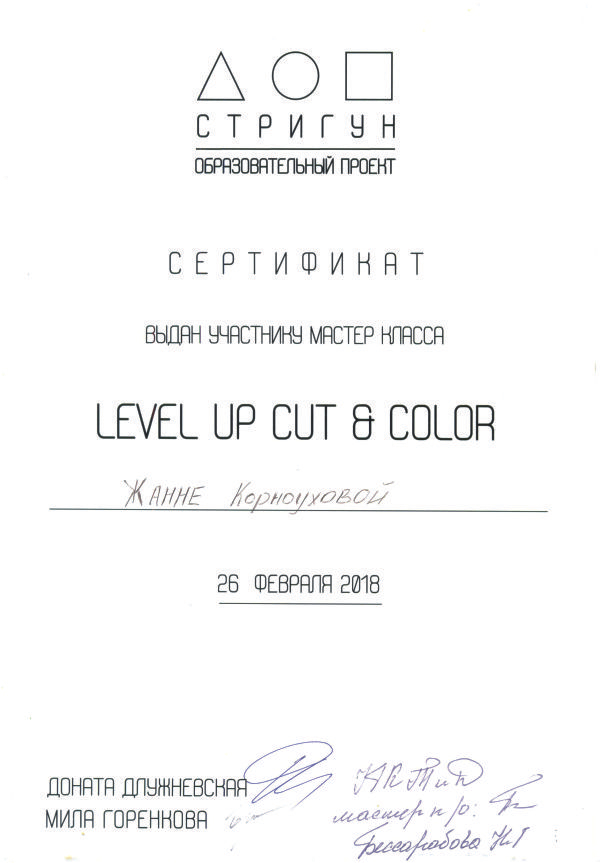 СТРИГУН
ОБРАЗОВАТЕЛЬНЫЙ ПРОЕКТ
СЕРТИФИКАТ
ВЫДАН УЧАСТНИКУ МАСТЕР КЛАССА
LEVEL UP CUT & COLOR
ЖАННЕ Корноуховой
26 ФЕВРАЛЯ 2018
ДОНАТА ДЛУЖНЕВСКАЯ
МИЛА ГОРЕНКОВА
мастер п/о:
Бессарабова